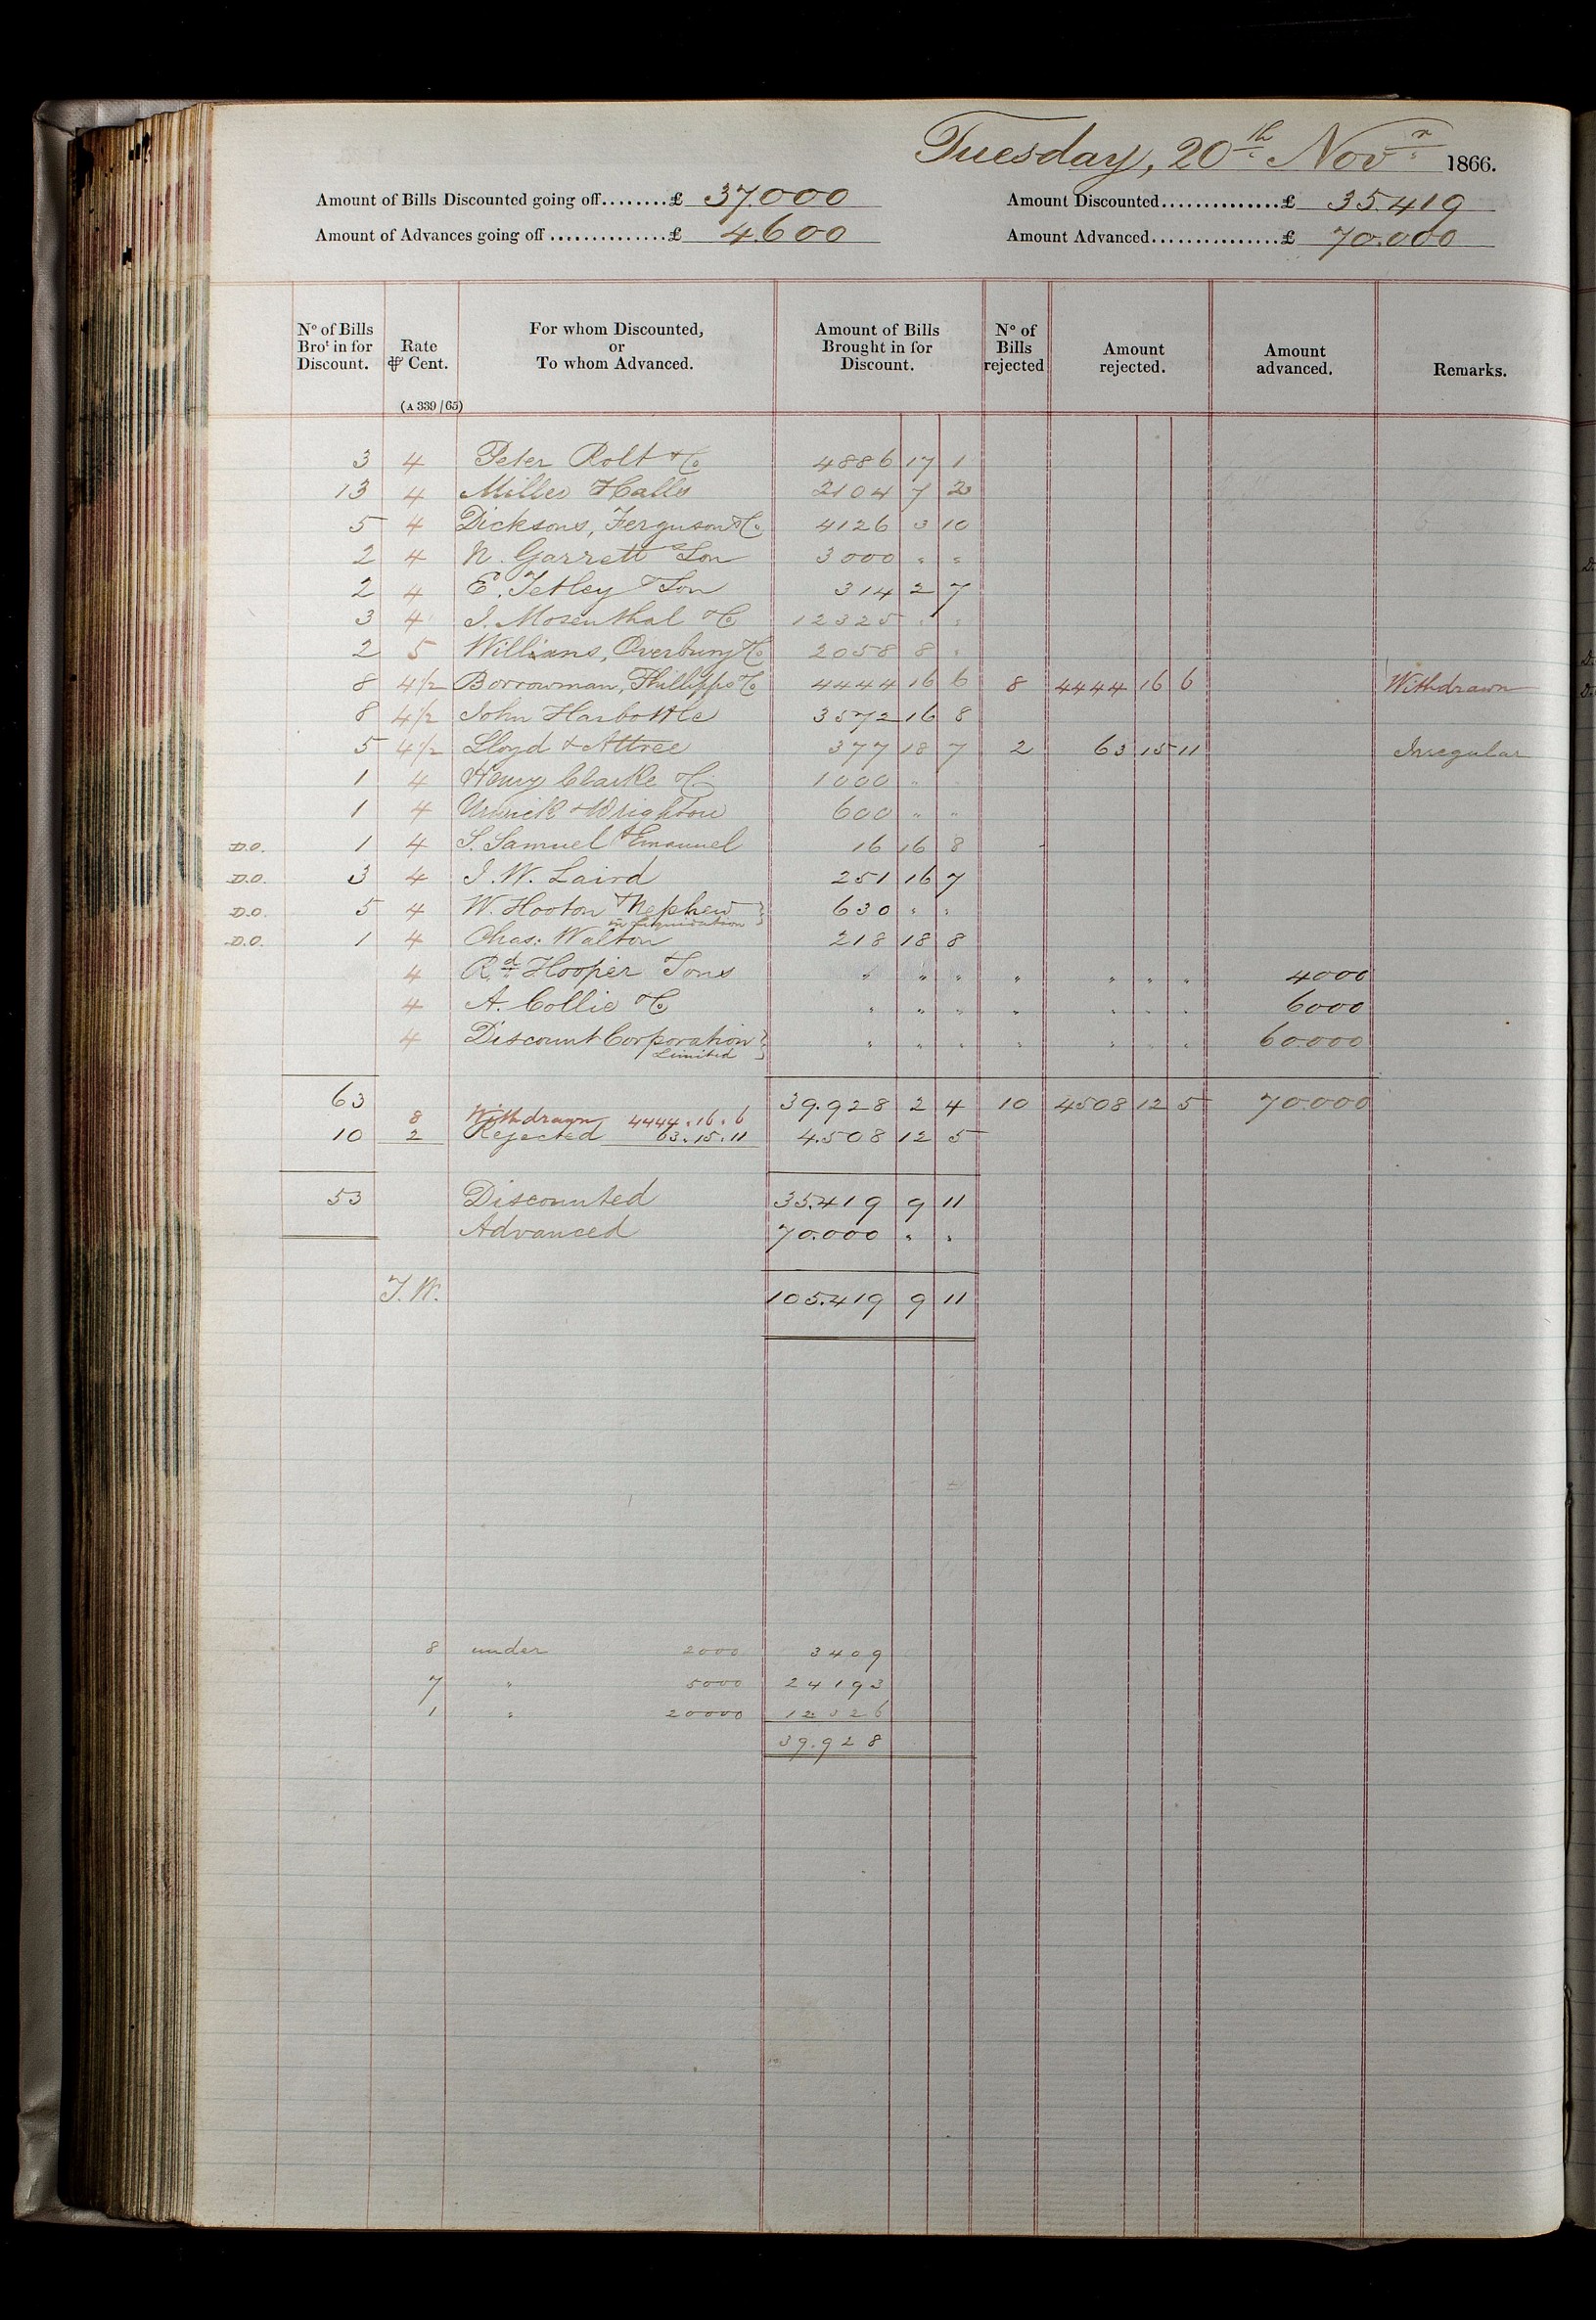 Tuesday, 20th Novr 1866.
Amount of Bills Discounted going off........£ 37,000 Amount Discounted..............£ 35.419
Amount of Advances going off ..............£ 4.600 Amount Advanced...............£ 70.000
No of Bills Brot in for Discount. Rate ⅌ Cent. (A 339/65) For whom Discounted, or To whom Advanced. Amount of Bills Brought in for Discount. No of Bills rejected Amount rejected. Amount advanced. Remarks.
3 4 Peter Rolt & Co 4886 17 1
13 4 Miller Halls 2104 7 2
5 4 Dicksons, Ferguson & Co 4126 3 10
2 4 N. Garrett & Son 3000 " "
2 4 E. Tetley & Son 314 2 7
3 4 J. Mosenthal & Co 12325 " "
2 5 Willians, Overbury & Co 2058 8 "
8 4½ Borrowman, Phillipps & Co 4444 16 6 8 4444 16 6 Withdrawn
8 4½ John Harbottle 3572 16 8
5 4½ Lloyd & Attree 377 18 7 2 63 15 11 Irregular
1 4 Henry Clarke & Co 1000 "
1 4 Urwick & Wrightson 600 " "
D.O. 1 4 S. Samuel & Emanuel 16 16 8
D.O. 3 4 J. W. Laird 251 16 7
D.O. 5 4 W. Hooton & Nephew } 630 " "
in liquidation
D.O. 1 4 Chas: Walton 218 18 8
4 Rd Hooper & Sons " " " " " " " 4000
4 A. Collie & Co " " " " " " " 6000
4 Discount Corporation } " " " " " " " 60000
Limited
63 39.928 2 4 10 4508 12 5 70.000
8 Withdrawn 4444.16.6
10 2 Rejected 63.15.11 4.508 12 5
53 Discounted 35.419 9 11
Advanced 70.000 " "
J. W. 105.419 9 11
8 under 2000 3409
7 " 5000 24193
1 " 20000 12326
39.928